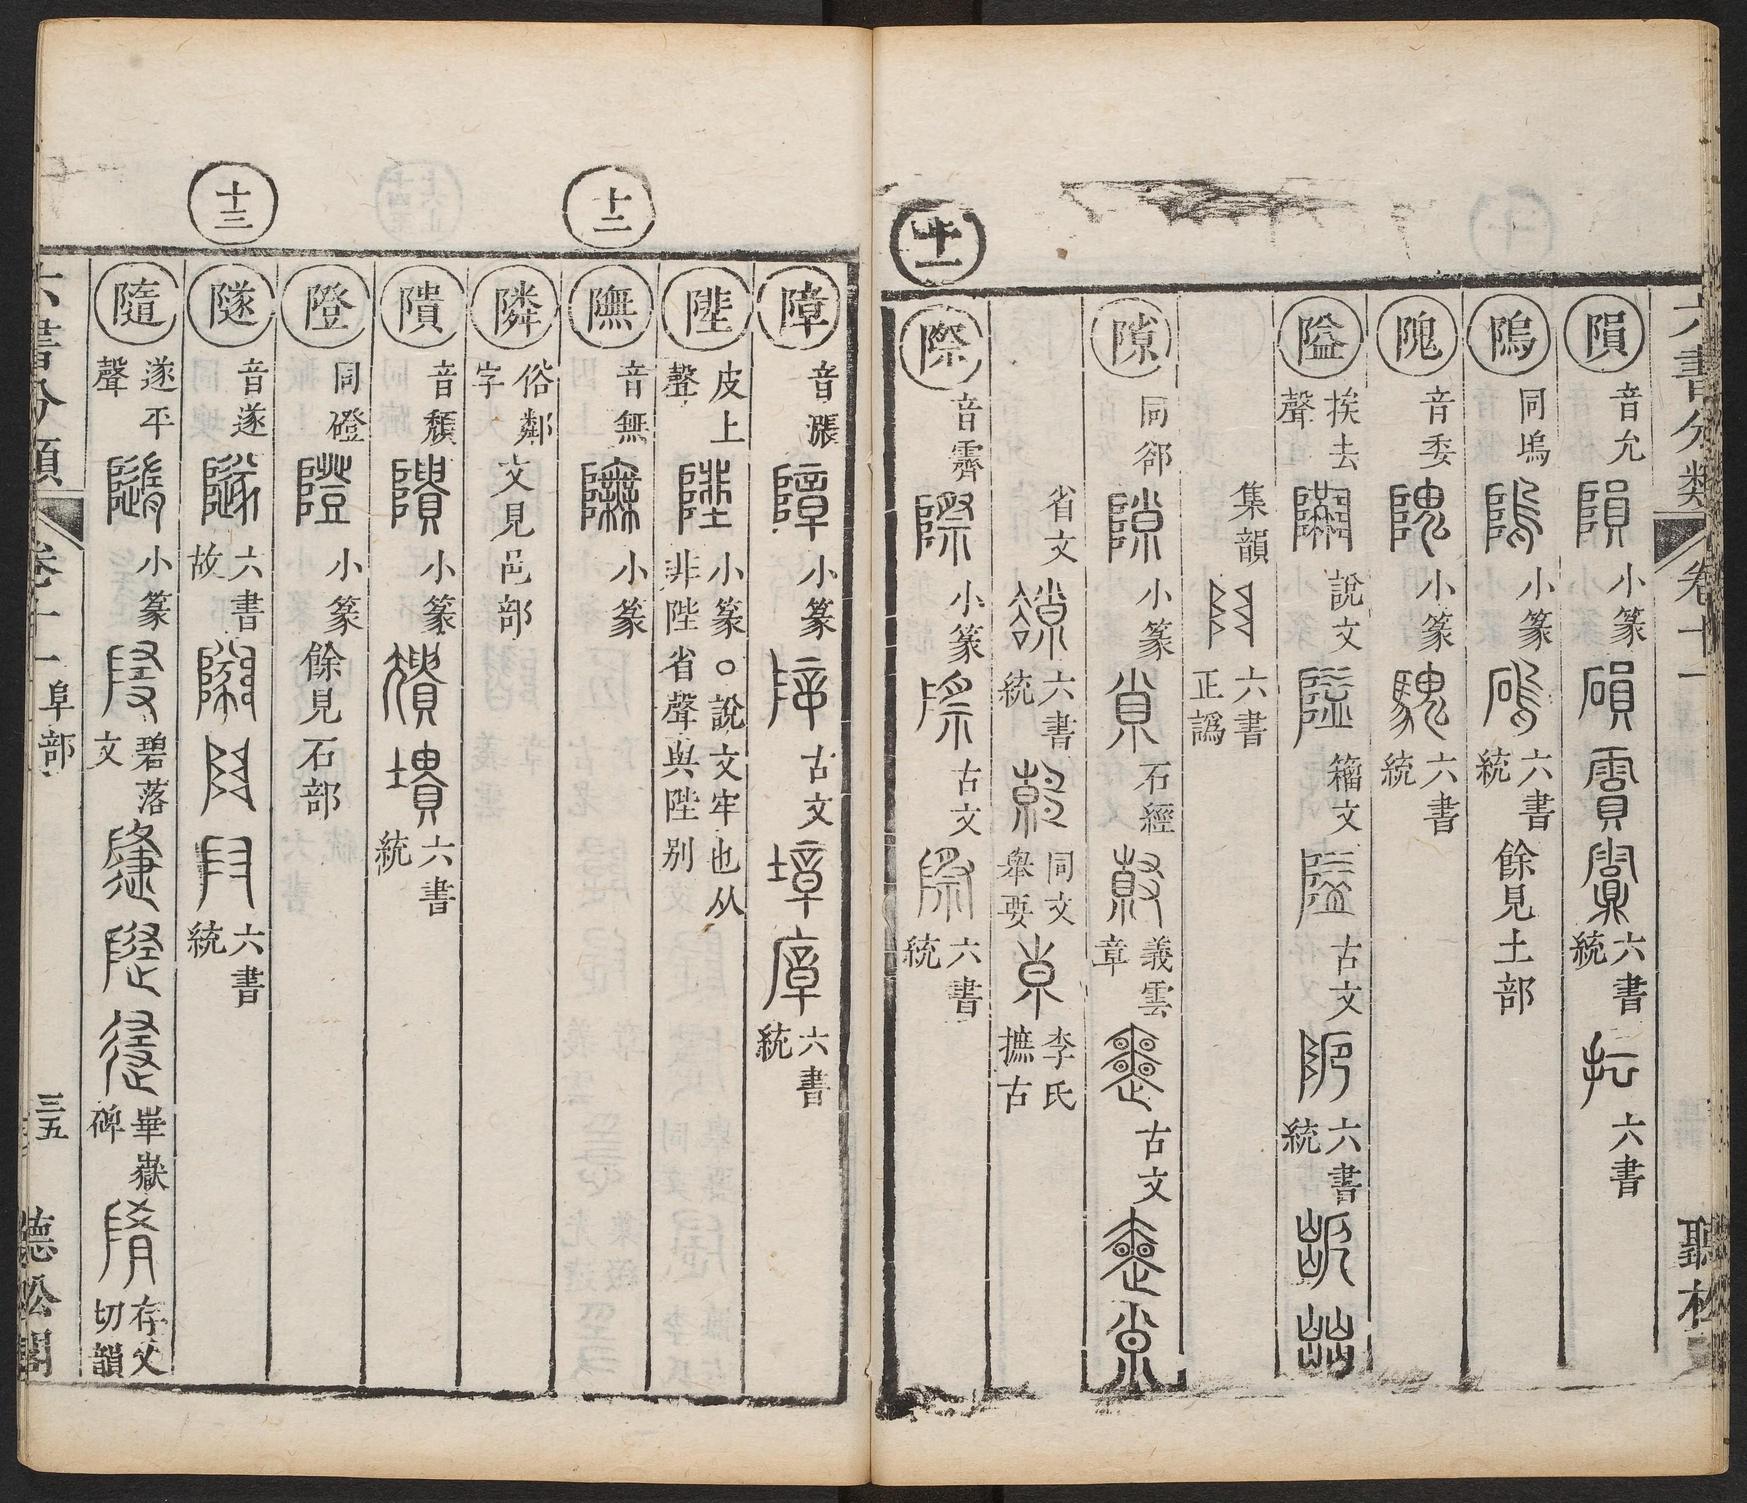 六書分類 卷十一 聽松
隕 音允 小篆 六書統 六書
隖 同塢 小篆 六書統 餘見土部
隗 音委 小篆 六書統
隘 挨去聲 說文 籀文 古文 六書統
集韻 六書正譌
隙 同郤 小篆 石經 義雲章 古文
省文 六書統 同文舉要 李氏摭古
十一
際 音霽 小篆 古文 六書統
障 音漲 小篆 古文 六書統
陞 皮上聲 小篆○說文牢也从非陛省聲與陛别
十二
隣 俗鄰字 文見邑部
音無 小篆
隤 音頽 小篆 六書統
隥 同磴 小篆 餘見石部
十三
隧 音遂 六書故 六書統
隨 遂平聲 小篆 碧落文 華嶽碑 存乂切韻
六書分類 卷十一 阜部 三五 聽松閣